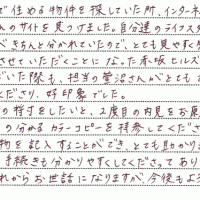 で住める物件を探していた所、インターネ
人のサイトを見つけました。自分達のライフスタ
べきちんと分かれていたので、とても見やすく
させていただくことになった赤坂ヒルズ
だいた際も、担当の菅沼さんがとても
くださり、好印象でした。
の検討をしたいと、2度目の内見をお願
の分かるカラーコピーを持参してくださ
物を記入することができ、とても助かりま
手続きも分かりやすくしてくださってあり
れからお世話になりますが、今後もよろ